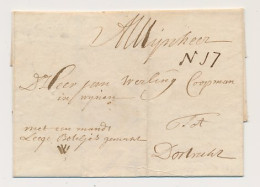 Mijnheer
N 17
Dr Heer Jan Werling Coopman
in wijnen
Tot
met een mandt
Leege Botteljes gemerkt
Dortrecht